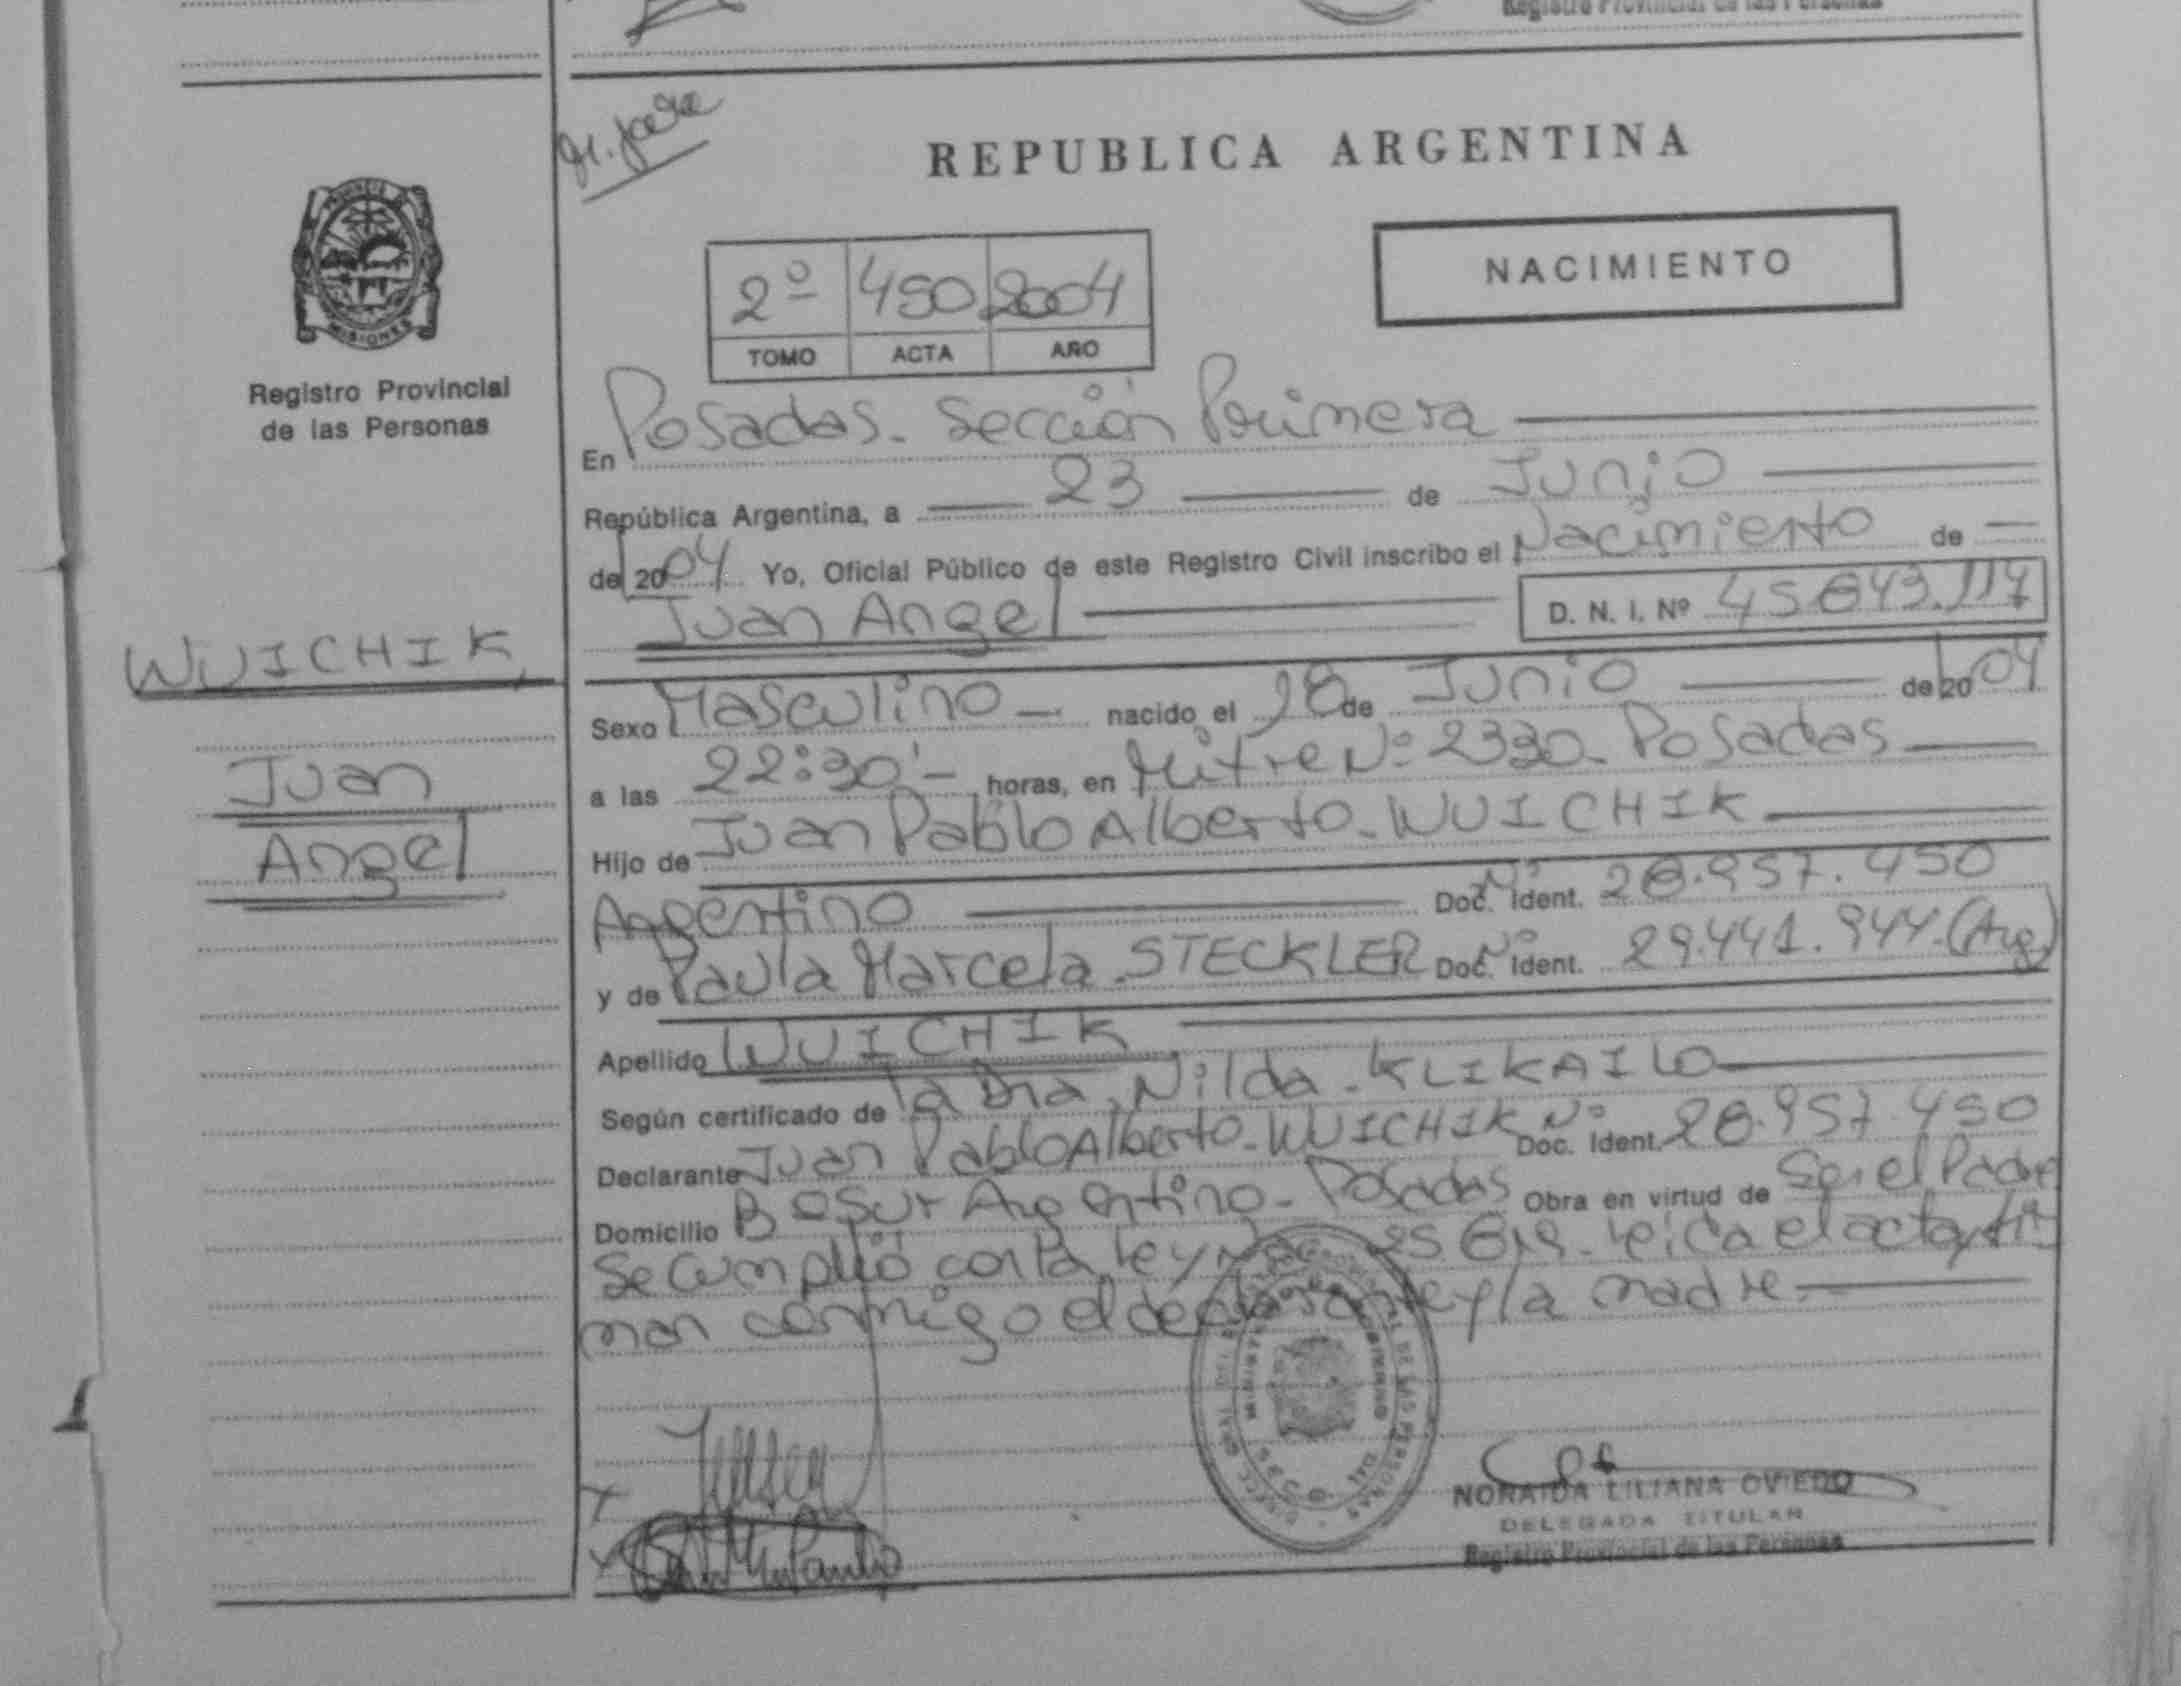 Registro Provincial de las Personas
REPUBLICA ARGENTINA
NACIMIENTO
2º 450 2004
TOMO ACTA AÑO
PROVINCIA DE
MISIONES
Registro Provincial
de las Personas
WUICHIK
Juan
Angel
En Posadas. Sección Primera
República Argentina, a 23 de Junio
de 2004 Yo, Oficial Público de este Registro Civil inscribo el Nacimiento de
Juan Angel
D. N. I. Nº
Sexo Masculino nacido el 18 de Junio de 2004
a las 22:30' horas, en Mitre Nº 2330. Posadas
Hijo de Juan Pablo Alberto. WUICHIK
Argentino Doc. Nº Ident. 28.957.450
y de Paula Marcela. STECKLER Doc. Nº Ident. 29.441.944. (Arg)
Apellido WUICHIK
Según certificado de la Dra. Nilda. KLIKAILO
Declarante Juan Pablo Alberto. WUICHIK Nº Doc. Ident. 28.957.450
Domicilio Bº Sur Argentino. Posadas Obra en virtud de Ser el Padre
Se cumplió con la ley leida el acta, fir
man conmigo el declarante y la madre
NORAIDA LILIANA OVIEDO
DELEGADA TITULAR
Registro Provincial de las Personas